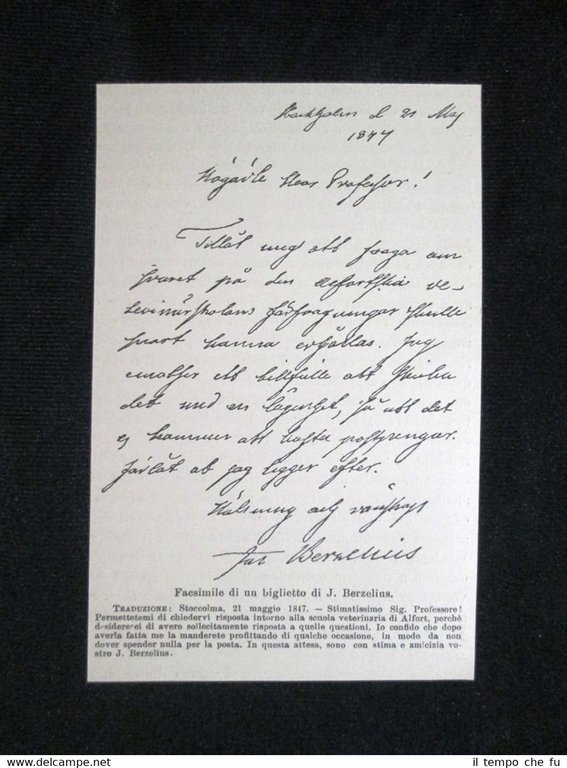 Stockholm d 21 Maj
1847
Högädle Herr Professor!
Tillåt mig att fråga om
svaret på den Alfortska ve-
terinärskolans förfrågningar skulle
snart kunna erhållas. Jag
ett tillfälle att skicka
det med en, så att det
ej kommer att kosta postpengar.
Förlåt at jag ligger efter.
och vänskap
Jac Berzelius
Facsimile di un biglietto di J. Berzelius.
TRADUZIONE: Stoccolma, 21 maggio 1847. – Stimatissimo Sig. Professore!
Permettetemi di chiedervi risposta intorno alla scuola veterinaria di Alfort, perchè
desidererei di avere sollecitamente risposta a quelle questioni. Io confido che dopo
averla fatta me la manderete profittando di qualche occasione, in modo da non
dover spender nulla per la posta. In questa attesa, sono con stima e amicizia vo-
stro J. Berzelius.
il tempo che fu